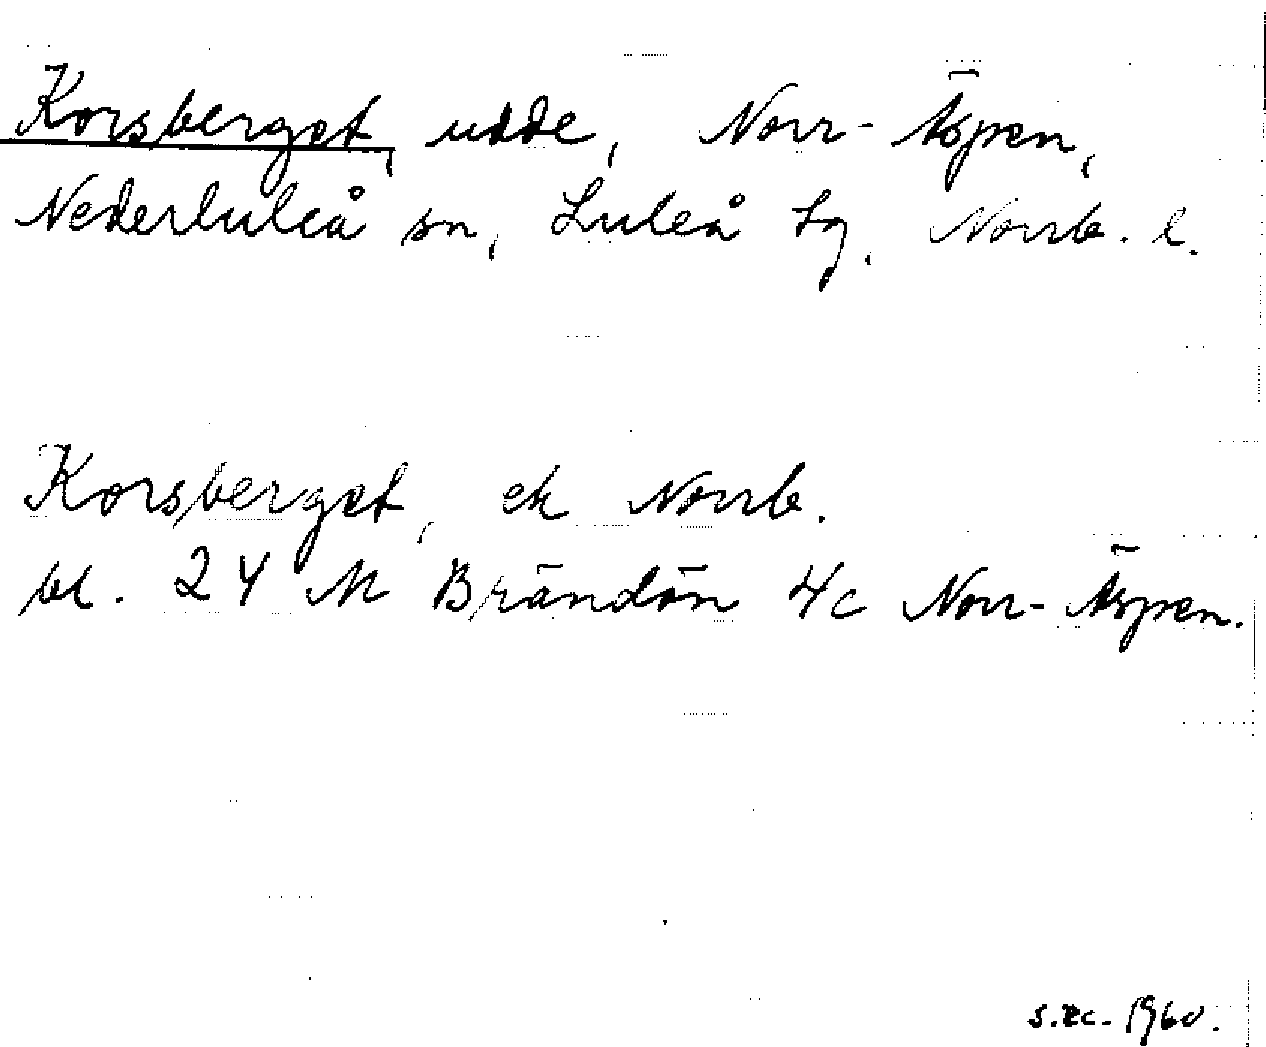 Korsberget, udde, Norr-Äspen,
Nederluleå sn, Luleå tg, Norrb. l.
Korsberget, ek Norrb.
bl. 24 M Brändön 4c Norr-Äspen.
1960.